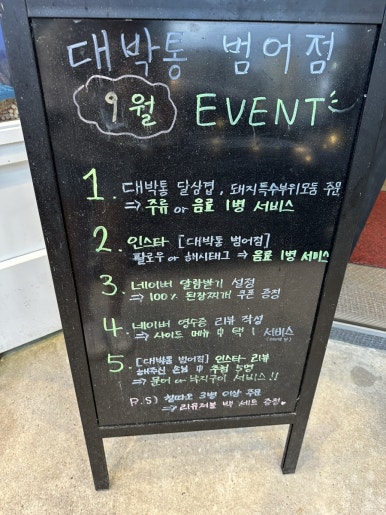 대박통 범어점
9월 EVENT
1. 대박통 달삼겹, 돼지특수부위모둠 주문
⇒ 주류 or 음료 1병 서비스
2. 인스타 [대박통 범어점]
팔로우 or 해시태그 ⇒ 음료 1병 서비스
3. 네이버 알람받기 설정
⇒ 100% 된장찌개 쿠폰 증정
4. 네이버 영수증 리뷰 작성
⇒ 사이드 메뉴 中 택 1 서비스
5. [대박통 범어점] 인스타 리뷰
해주신 손님 中 추첨 5명
⇒ 문어 or 낙지구이 서비스!!
P.S) 칭따오 3병 이상 주문
⇒ 리유저블 백 세트 증정♥